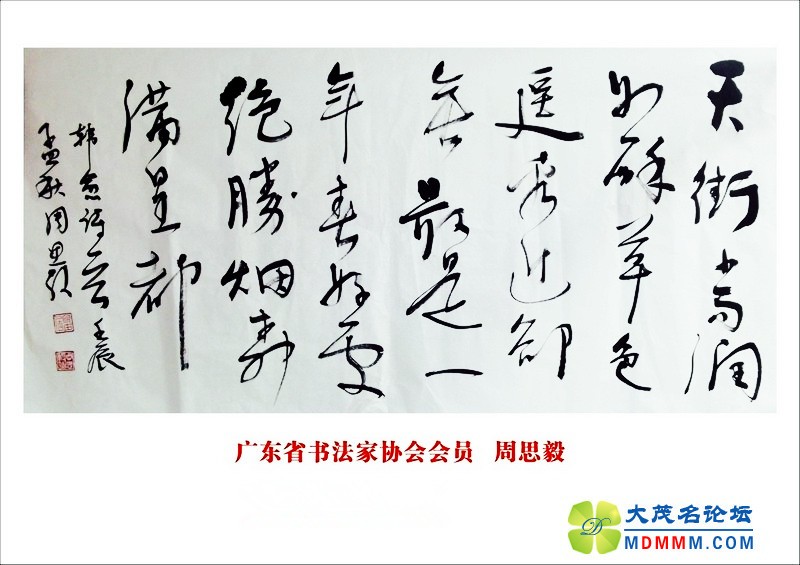 天街小雨润
如酥草色
遥看近却
無最是一
年春好处
绝勝烟柳
满皇都
韩愈诗 壬辰
孟秋周思毅
广东省书法家协会会员 周思毅
大茂名论坛
MDMMM.COM